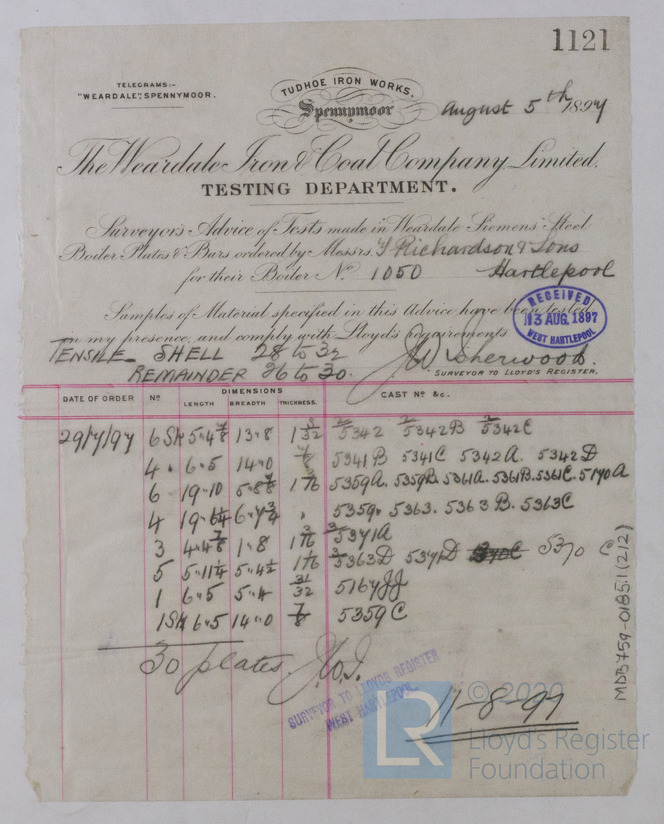 1121
TELEGRAMS:-
"WEARDALE", SPENNYMOOR.
TUDHOE IRON WORKS.
Spennymoor
August 5th 1897
The Weardale Iron & Coal Company, Limited.
TESTING DEPARTMENT.
Surveyor's Advice of Tests made in Weardale Siemens' Steel
Boiler Plates & Bars ordered by Messrs. T Richardson & Sons
for their Boiler No. 1050 Hartlepool
Samples of Material specified in this Advice have been tested
in my presence, and comply with Lloyd's requirements.
RECEIVED
13 AUG. 1897
WEST HARTLEPOOL
TENSILE SHELL 28 to 32
REMAINDER 26 to 30.
J.W. Sherwood.
SURVEYOR TO LLOYD'S REGISTER.
DATE OF ORDER No. DIMENSIONS CAST No. &c.
LENGTH BREADTH THICKNESS.
29/7/97 6 SH 13·8 5342 5342B 5342C
4 6·5 14·0 7/8 5341B 5341C 5342A. 5342D
6 19·10 1 1/16 5359A. 5359B 5361A. 5361B. 5361C. 5170A
4 5359. 5363. 5363B. 5363C
3 4·4 7/8 1·8 5371A
5 5·11 1/4 5·4 1/2 1 1/16 5363D 5371D 5370 C
1 6·5 5·4 31/32 5167JJ
1 SH 6·5 14·0 7/8 5359C
30 plates
SURVEYOR TO LLOYDS REGISTER
WEST HARTLEPOOL
11-8-97
MDB759-0185.1 (212)
© 2020
LR
Lloyd's Register
Foundation